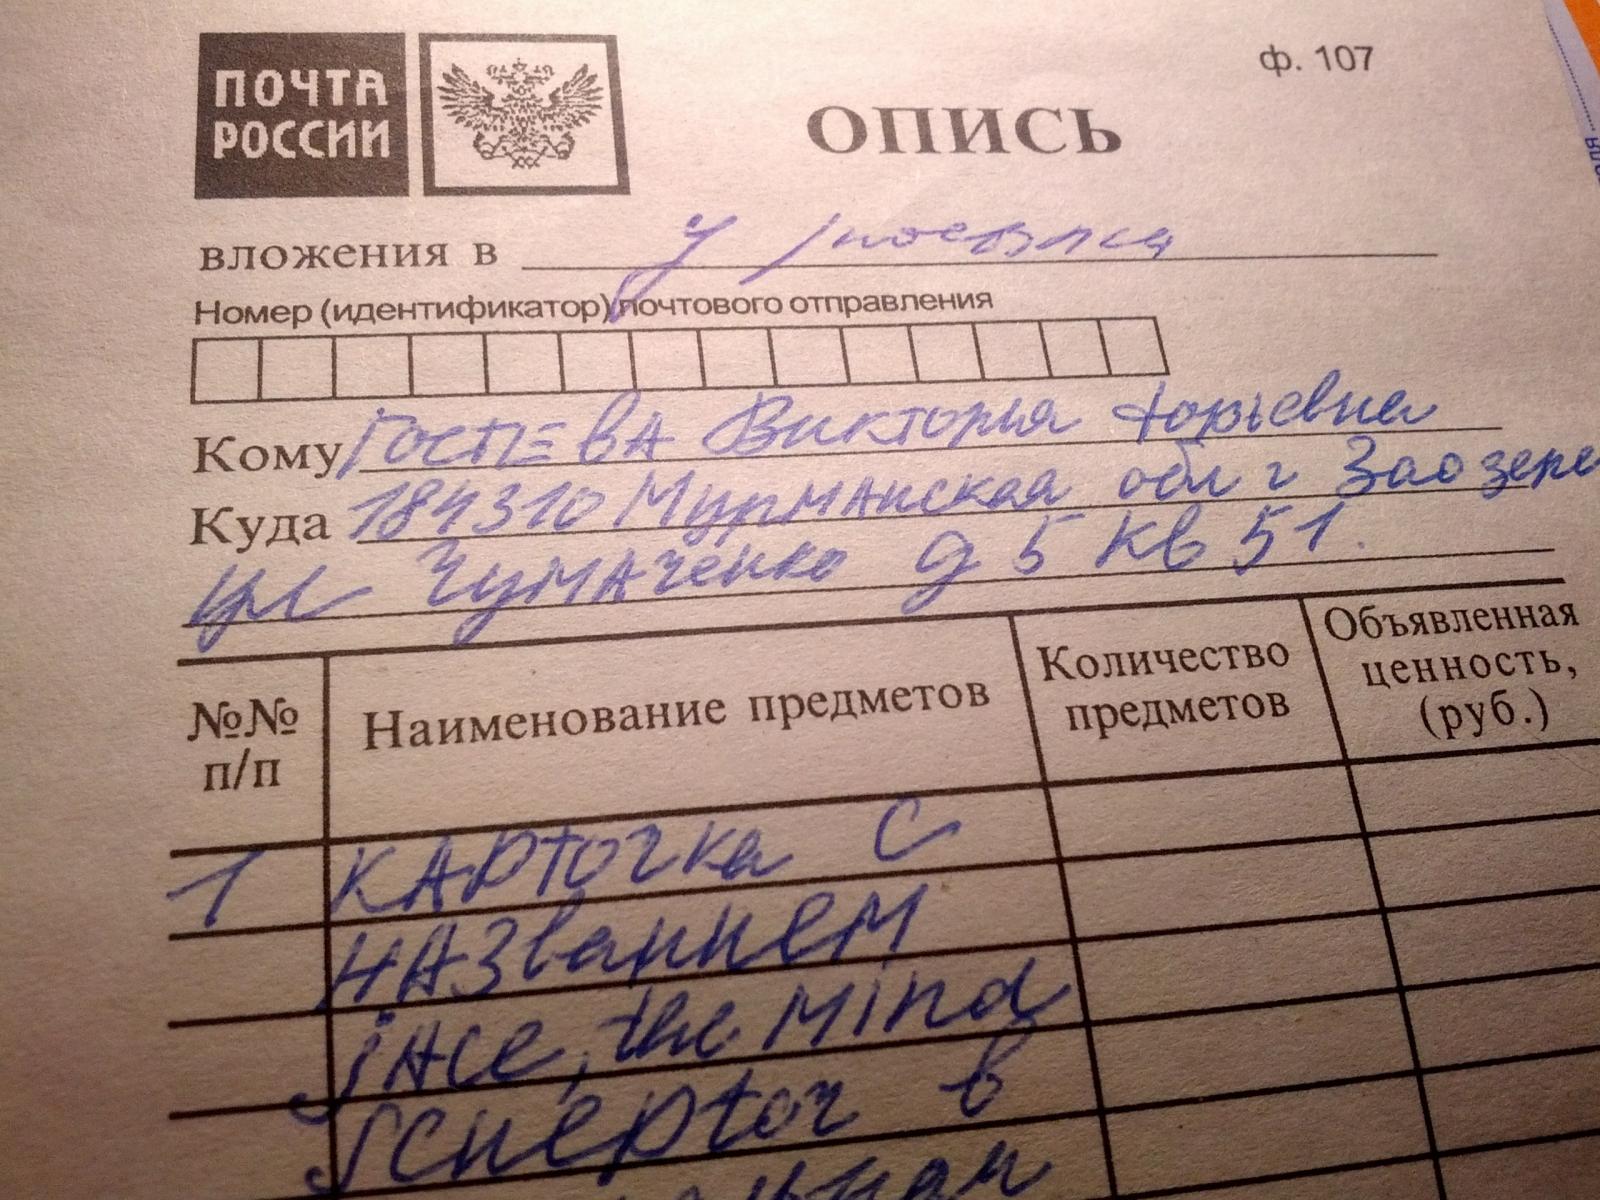 ПОЧТА
РОССИИ
ф. 107
ОПИСЬ
вложения в
Номер (идентификатор) почтового отправления
Кому Гостева Виктория Юрьевна
Куда 184310 Мурманская обл г Заозерс
ул Чумаченко д 5 кв 51.
№№ п/п
Наименование предметов
Количество предметов
Объявленная ценность, (руб.)
1 Карточка с
названием
jace, the Mind
в